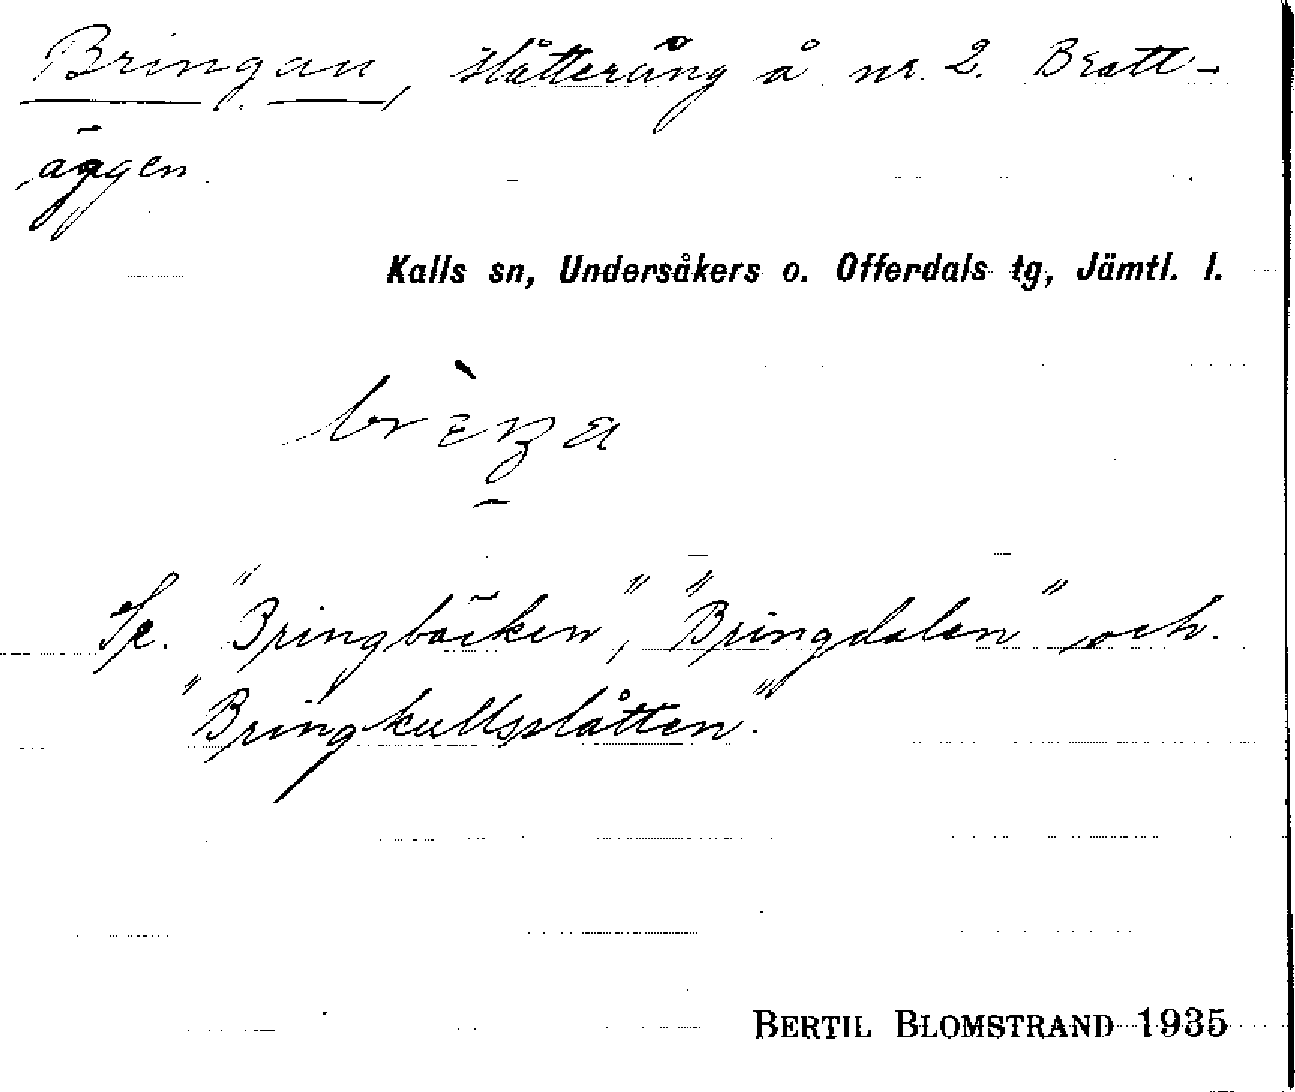 Bringan, slåtteräng å nr. 2. Bratt-
äggen.
Kalls sn, Undersåkers o. Offerdals tg, Jämtl. l.
Se. "Bringbäcken", "Bringdalen" och
"Bringkullsslåtten".
BERTIL BLOMSTRAND 1935